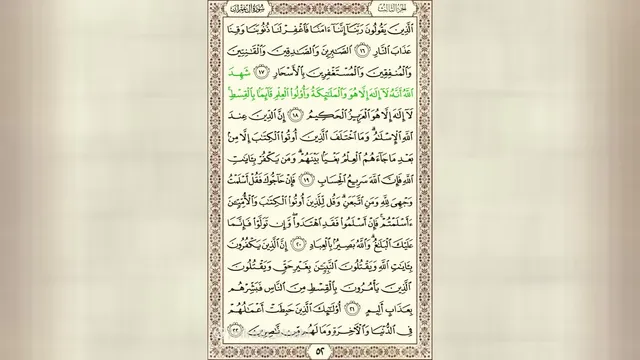 الجزء الثالث
سورة آل عمران
الَّذِينَ يَقُولُونَ رَبَّنَا إِنَّنَا ءَامَنَّا فَاغْفِرْ لَنَا ذُنُوبَنَا وَقِنَا
عَذَابَ النَّارِ ١٦ الصَّابِرِينَ وَالصَّادِقِينَ وَالْقَانِتِينَ
وَالْمُنفِقِينَ وَالْمُسْتَغْفِرِينَ بِالْأَسْحَارِ ١٧ شَهِدَ
اللَّهُ أَنَّهُ لَا إِلَهَ إِلَّا هُوَ وَالْمَلَائِكَةُ وَأُولُوا الْعِلْمِ قَائِمًا بِالْقِسْطِ
لَا إِلَهَ إِلَّا هُوَ الْعَزِيزُ الْحَكِيمُ ١٨ إِنَّ الدِّينَ عِندَ
اللَّهِ الْإِسْلَامُ وَمَا اخْتَلَفَ الَّذِينَ أُوتُوا الْكِتَابَ إِلَّا مِن
بَعْدِ مَا جَاءَهُمُ الْعِلْمُ بَغْيًا بَيْنَهُمْ وَمَن يَكْفُرْ بِـَٔايَاتِ
اللَّهِ فَإِنَّ اللَّهَ سَرِيعُ الْحِسَابِ ١٩ فَإِنْ حَاجُّوكَ فَقُلْ أَسْلَمْتُ
وَجْهِيَ لِلَّهِ وَمَنِ اتَّبَعَنِ وَقُل لِّلَّذِينَ أُوتُوا الْكِتَابَ وَالْأُمِّيِّينَ
ءَأَسْلَمْتُمْ فَإِنْ أَسْلَمُوا فَقَدِ اهْتَدَوا وَّإِن تَوَلَّوْا فَإِنَّمَا
عَلَيْكَ الْبَلَاغُ وَاللَّهُ بَصِيرٌ بِالْعِبَادِ ٢٠ إِنَّ الَّذِينَ يَكْفُرُونَ
بِـَٔايَاتِ اللَّهِ وَيَقْتُلُونَ النَّبِيِّينَ بِغَيْرِ حَقٍّ وَيَقْتُلُونَ
الَّذِينَ يَأْمُرُونَ بِالْقِسْطِ مِنَ النَّاسِ فَبَشِّرْهُم
بِعَذَابٍ أَلِيمٍ ٢١ أُولَئِكَ الَّذِينَ حَبِطَتْ أَعْمَالُهُمْ
فِي الدُّنْيَا وَالْآخِرَةِ وَمَا لَهُم مِّن نَّاصِرِينَ ٢٢
٥٢